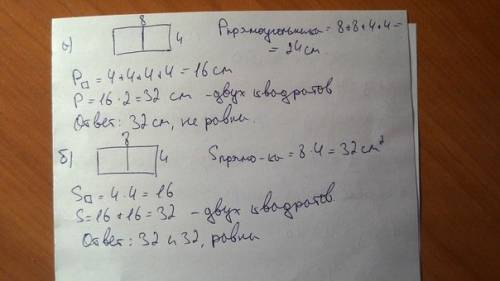 а) 8 4 Pпрямоугольника = 8+8+4+4=
= 24 см
P□ = 4+4+4+4 = 16 см
P = 16·2 = 32 см - двух квадратов
Ответ: 32 см, не равны.
б) 8 4 Sпрямо-ка = 8·4 = 32 см²
S□ = 4·4 = 16
S = 16+16 = 32 - двух квадратов
Ответ: 32 и 32, равны